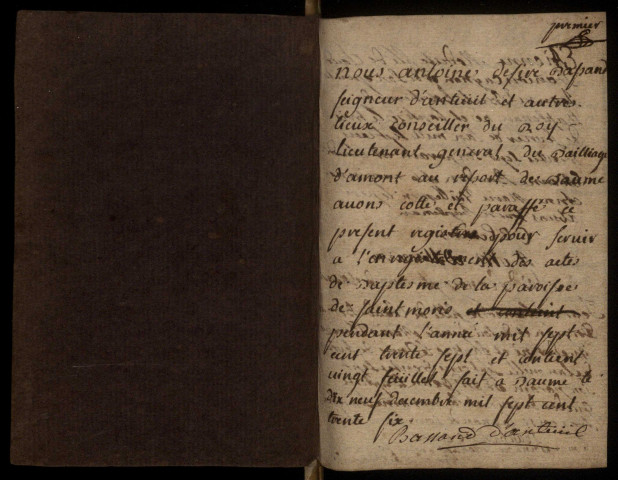 premier
nous antoine desire Bassand
seigneur d'anteuil et autres
lieux Conseiller du Roy
Lieutenant general du Bailliage
d'amont au report de Baume
avons cotté et paraffé ce
present registre pour servir
a l'enregistrement des actes
de Baptesme de la paroisse
de saint moris et anteuil
pendant l'anné mil sept
cent trente sept et contient
vingt feuilles fait a Baume le
dix neuf decembre mil sept cent
trente six
Bassand d'anteuil